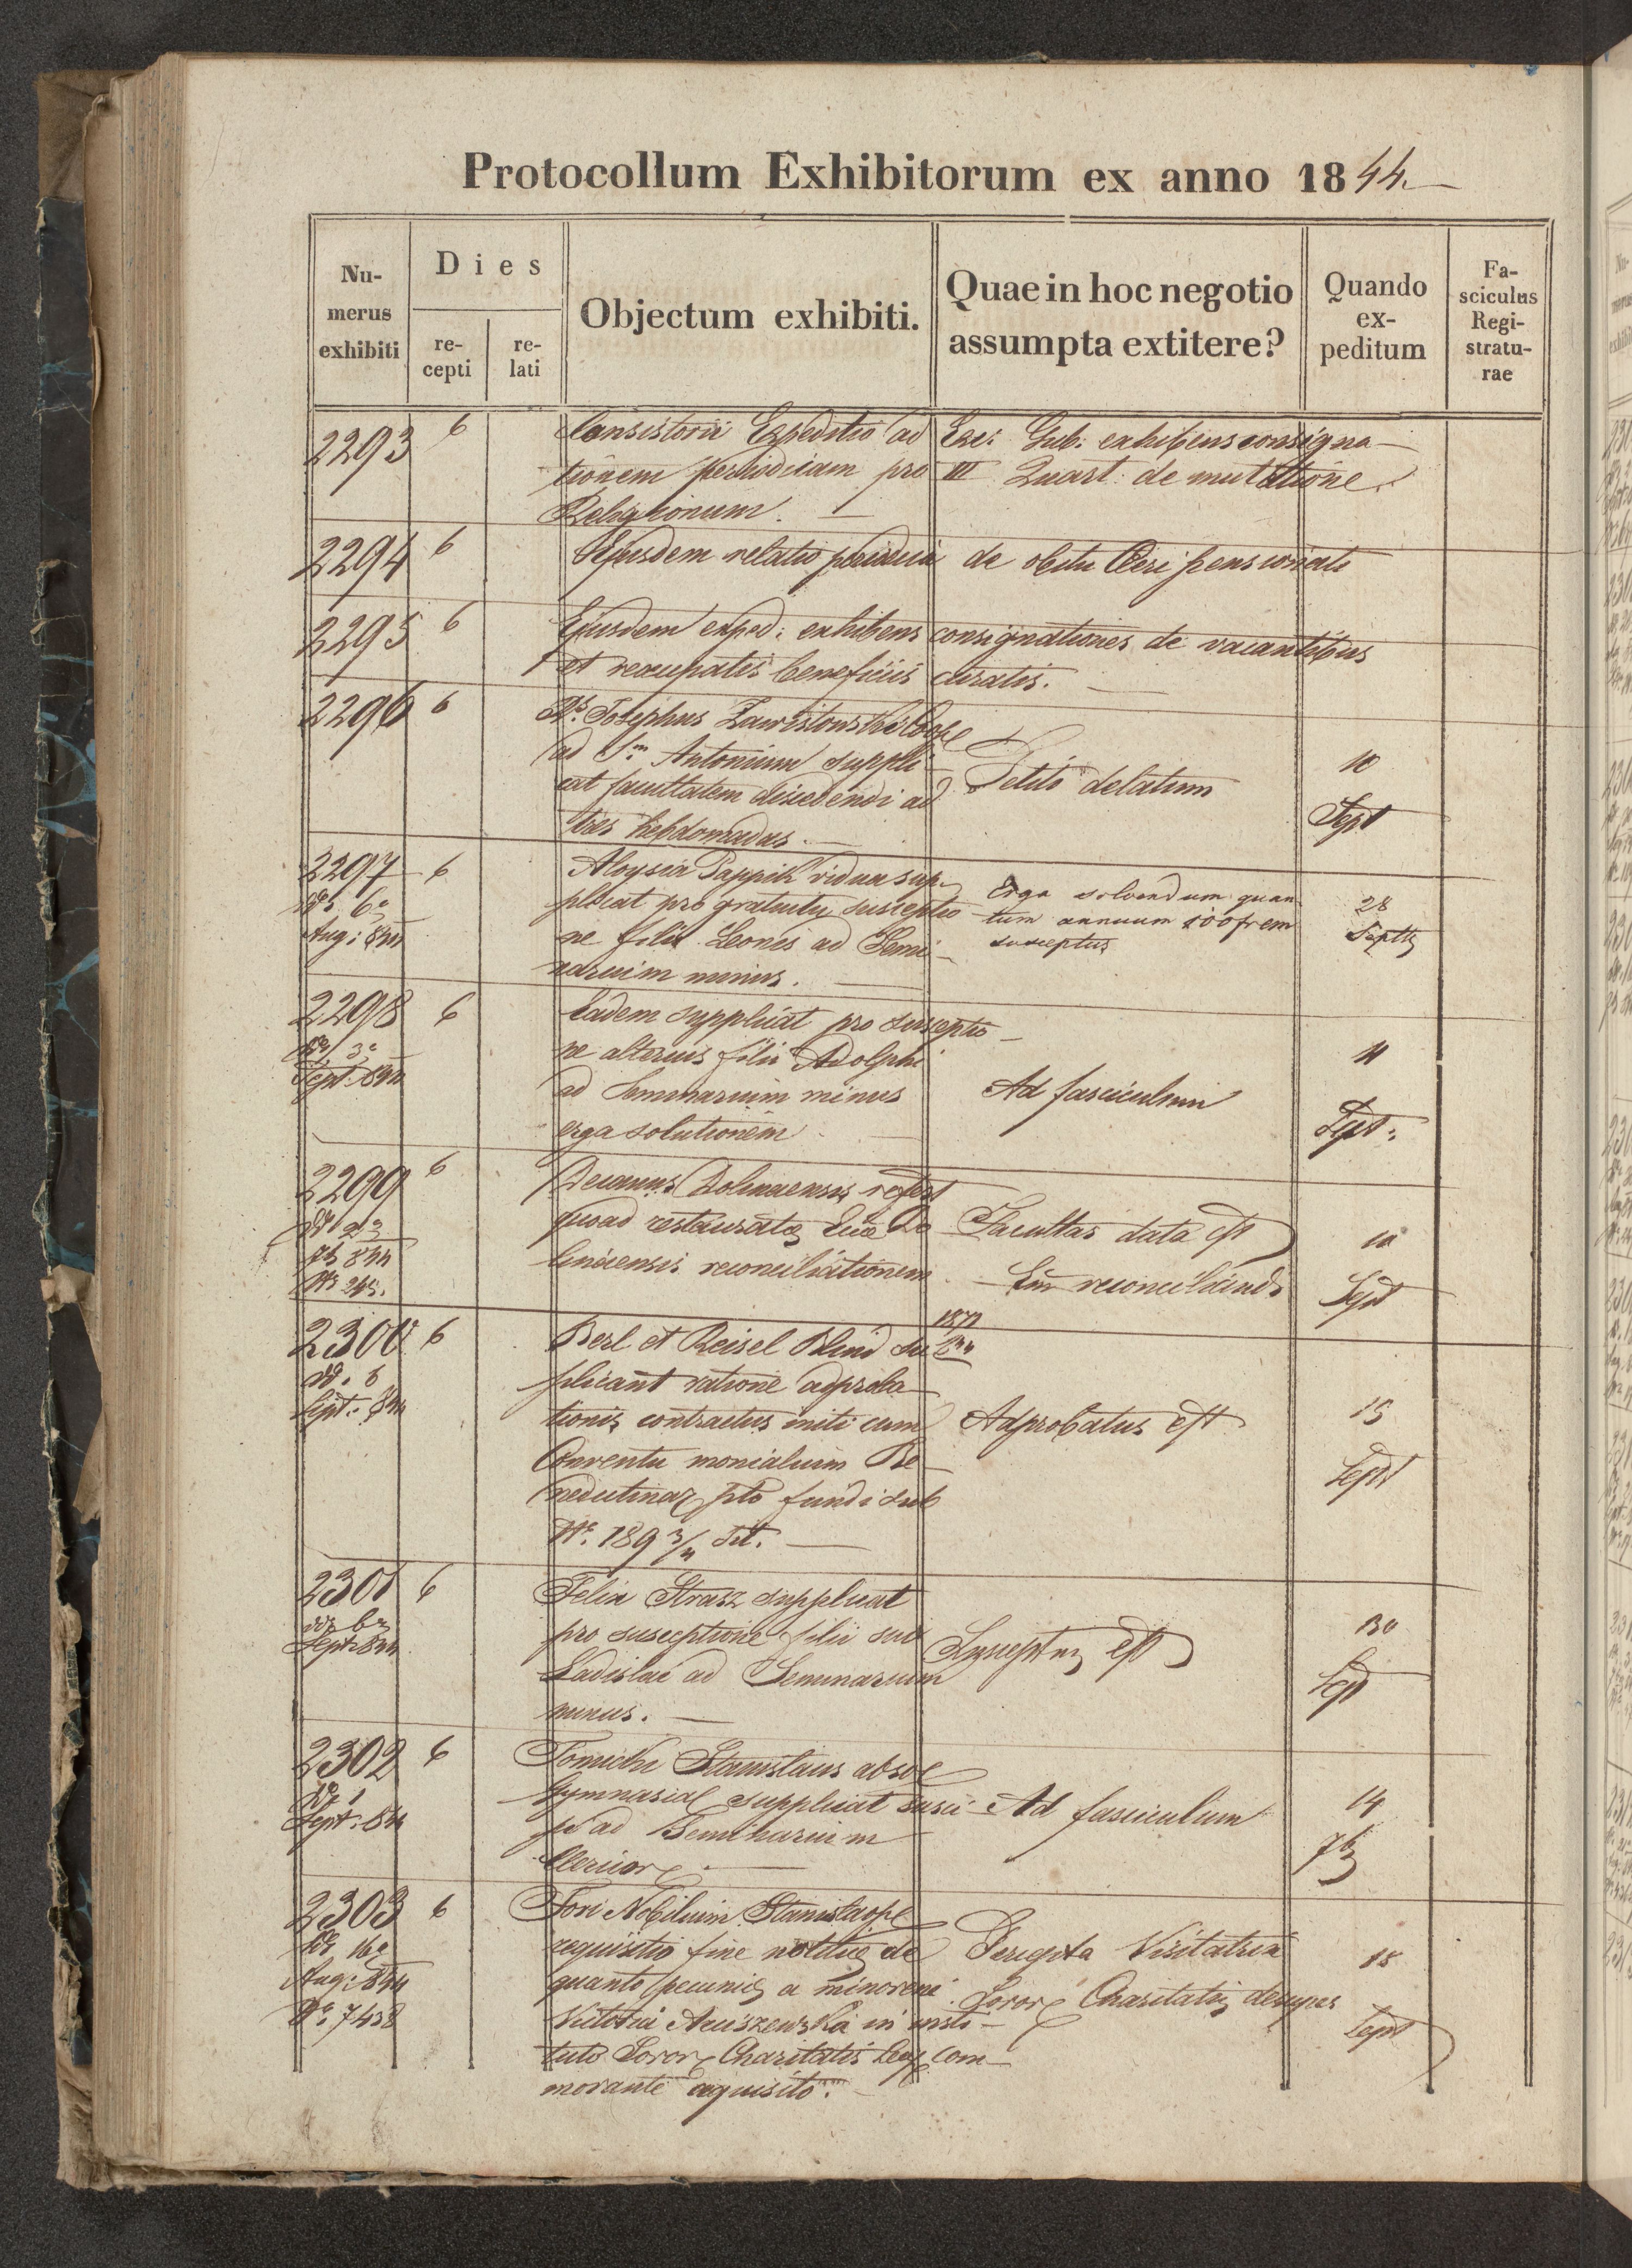 Protocollum Exhibitorum ex anno 1844.
Nu-
merus
exhibiti
Dies
re-
cepti
re-
lati
Objectum exhibiti.
Quae in hoc negotio
assumpta extitere?
Quando
ex-
peditum
Fa-
sciculus
Regi-
stratu-
rae
2293 6 Consistorii Expeditio ad Exc: Gub: exhibens consigna-
tionem periodicam pro III Quart: de mutatione
Religionum.
2294 6 Ejusdem relatio periodica de obitu Cleri pensionati
2295 6 Ejusdem exped: exhibens consignationes de vacantibus
et reocupatis beneficiis curatis.
2296 6
Josephus Zawistowski Coope
ad S. Antonium suppli-
cat facultatem discedendi ad
tres hebdomadas.
Petito delatum
10
Sept
2297 6
6
Aug: 844
Aloysia Pappik vidua sup-
plicat pro gratuita susceptio-
ne filii Leonis ad Semi-
narium minus.
Erga solvendum quan-
tum annuum 100 frem
susceptus
28
Sept
2298 6
3
Sept: 844
Eadem supplicat pro susceptio-
ne alterius filii Adolphi
ad Seminarium minus
erga solutionem
Ad fasciculum
11
Sept:
2299 6
2
844
No 245.
Decanus Dolinaensis refert
quoad restauratae Ecclae Do-
linaensis reconciliationem
Facultas data est
Eam reconciliandi
10
Sept
2300 6
6
Sept: 844
Berl et Reisel Blind su-
plicant ratione adproba-
tionis contractus initi cum
Conventu monialium Be-
nedictinar pto fundi sub
No. 189 3/4 sit.
Adprobatus est
15
Sept
2301 6
6
Sept: 844
Felix Strasz supplicat
pro susceptione filii sui
Ladislai ad Seminarium
minus.
Susceptus est
30
Sept
2302 6
1
Sept: 844
Tomicki Stanislaus absol
Gymnasial supplicat susci-
pi ad Seminarium
Clericor
Ad fasciculum
14
2303 6
16
Aug: 844
No 7438
Fori Nobilium Stanislaop
requisitio fine notitiae de
quanto pecuniae a minorene
Victoria Aciszewska in insti-
tuto Soror Charitatis Leop com-
morante aquisito.
Visitatrix
Soror Charitatis
18
Sept